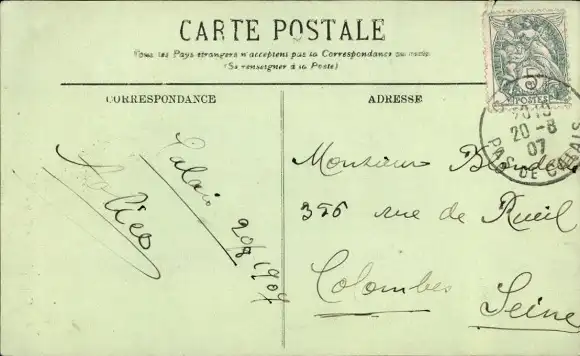 CARTE POSTALE
Tous les Pays étrangers n'acceptent pas la Correspondance au recto
(Se renseigner à la Poste)
CORRESPONDANCE
ADRESSE
Calais 20/8 1907
Monsieur
356 rue de Rueil
Colombes
Seine
5
POSTES
20-8
07
PAS DE CALAIS